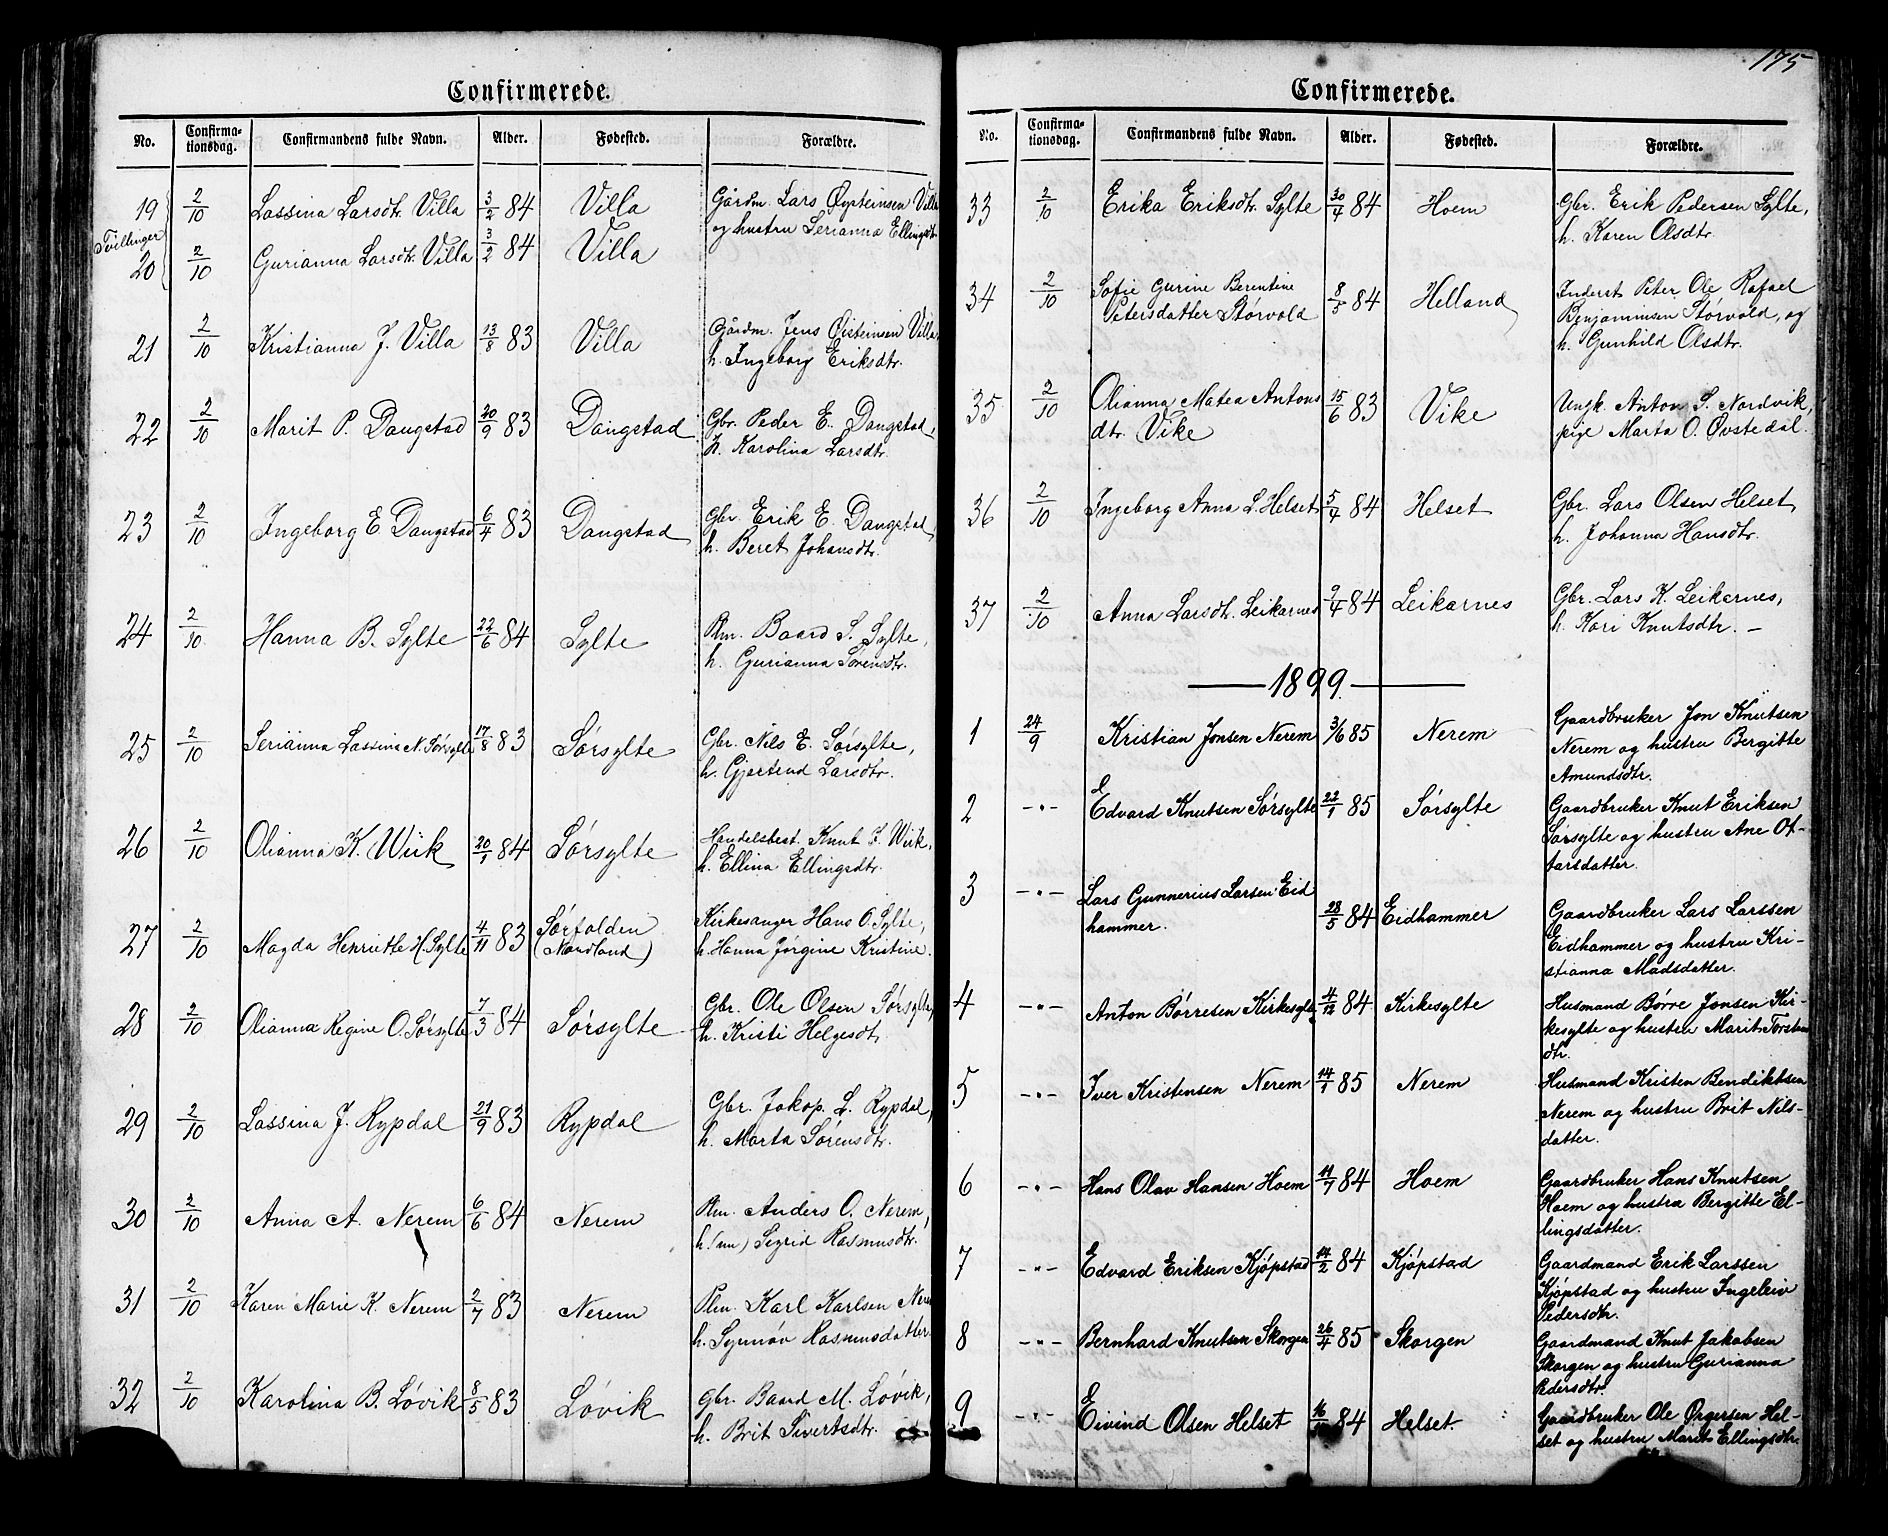 Confirmerede.
No. Confirmationsdag. Confirmandens fulde Navn. Alder. Fødested. Forældre.
19 2/10 Lassina Larsdtr. Villa 3/2 84 Villa Gårdm. Lars Øysteinsen Villa
og hustru Serianna Ellingsdtr.
Tvillinger
20 2/10 Gurianna Larsdtr. Villa 3/2 84 Villa
21 2/10 Kristianna J. Villa 13/8 83 Villa Gårdm. Jens Øisteinsen Villa,
h. Ingeborg Eriksdtr.
22 2/10 Marit P. Daugstad 20/9 83 Daugstad Gbr. Peder E. Daugstad,
h. Karolina Larsdtr.
23 2/10 Ingeborg E. Daugstad 6/4 83 Daugstad Gbr. Erik E. Daugstad,
h. Beret Johansdtr.
24 2/10 Hanna B. Sylte 22/6 84 Sylte Plm. Baard S. Sylte,
h. Gurianna Sørensdtr.
25 2/10 Serianna Lassina N. Sørsylte 17/8 83 Sørsylte Gbr. Nils E. Sørsylte,
h. Gjertrud Larsdtr.
26 2/10 Olianna K. Wiik 20/1 84 Sørsylte Handelsbest. Knut J. Wiik,
h. Ellina Ellingsdtr.
27 2/10 Magda Henriette H. Sylte 4/11 83 Sørfolden (Nordland) Kirkesanger Hans O. Sylte,
h. Hanna Jørgine Kristine.
28 2/10 Olianna Regine O. Sørsylte 7/3 84 Sørsylte Gbr. Ole Olsen Sørsylte,
h. Kristi Helgesdt.
29 2/10 Lassina J. Rypdal 21/9 83 Rypdal Gbr. Jakop L. Rypdal,
h. Marta Sørensdtr.
30 2/10 Anna A. Nerem 6/6 84 Nerem Plm. Anders O. Nerem,
h. (nu) Sigrid Rasmusdtr.
31 2/10 Karen Marie K. Nerem 2/7 83 Nerem Plm. Karl Karlsen Nerem
h. Synnøv Rasmusdatter.
32 2/10 Karolina B. Løvik 8/5 83 Løvik Gbr. Baard M. Løvik,
h. Brit Sivertsdtr.
175
Confirmerede.
No. Confirmationsdag. Confirmandens fulde Navn. Alder. Fødested. Forældre.
33 2/10 Erika Eriksdtr. Sylte 30/4 84 Hoem Gbr. Erik Pedersen Sylte,
h. Karen Olsdtr.
34 2/10 Sofie Gurine Berentine 8/5 84 Helland Inderst Peter Ole Rafael
Petersdatter Størvold Benjaminsen Størvold, og
h. Gunhild Olsdtr.
35 2/10 Olianna Matea Antons 15/6 83 Vike Ungk. Anton S. Nordvik,
dtr. Vike pige Marta O. Øvstedal.
36 2/10 Ingeborg Anna L. Helset 5/4 84 Helset Gbr. Lars Olsen Helset,
h. Johanna Hansdtr.
37 2/10 Anna Larsdtr. Leikarnes 9/4 84 Leikarnes Gbr. Lars K. Leikarnes,
h. Kari Knutsdtr. —
— 1899. —
1 24/9 Kristian Jonsen Nerem 3/6 85 Nerem Gaardbruker Jon Knutsen
Nerem og hustru Bergitte
Amundsdtr.
2 —"— Edvard Knutsen Sørsylte 22/1 85 Sørsylte Gaardbruker Knut Eriksen
Sørsylte og hustru Ane Ot-
tarsdatter.
3 —"— Lars Gunnerius Larsen Eid
hammer. 28/5 84 Eidhammer Gaardbruker Lars Larssen
Eidhammer og hustru Kri-
stianna Madsdatter.
4 —"— Anton Børresen Kirkesylte 4/12 84 Kirkesylte Husmand Børre Jonsen Kir-
kesylte og hustru Marit Torstens
dtr.
5 —"— Iver Kristensen Nerem 14/1 85 Nerem Husmand Kristen Bendiktsen
Nerem og hustru Brit Nils-
datter.
6 —"— Hans Olav Hansen Hoem 11/7 84 Hoem Gaardbruker Hans Knutsen
Hoem og hustru Bergitte El-
lingsdatter.
7 —"— Edvard Eriksen Kjøpstad 14/2 84 Kjøpstad Gaardmand Erik Larssen
Kjøpstad og hustru Ingeleiv
Pedersdtr.
8 —"— Bernhard Knutsen Skorgen 26/4 85 Skorgen Gaardmand Knut Jakobsen
Skorgen og hustru Gurianna
Pedersdtr.
9 —"— Eivind Olsen Helset 16/10 84 Helset. Gaardbruker Ole Ørgersen Hel-
set og hustru Marit Ellingsdtr.